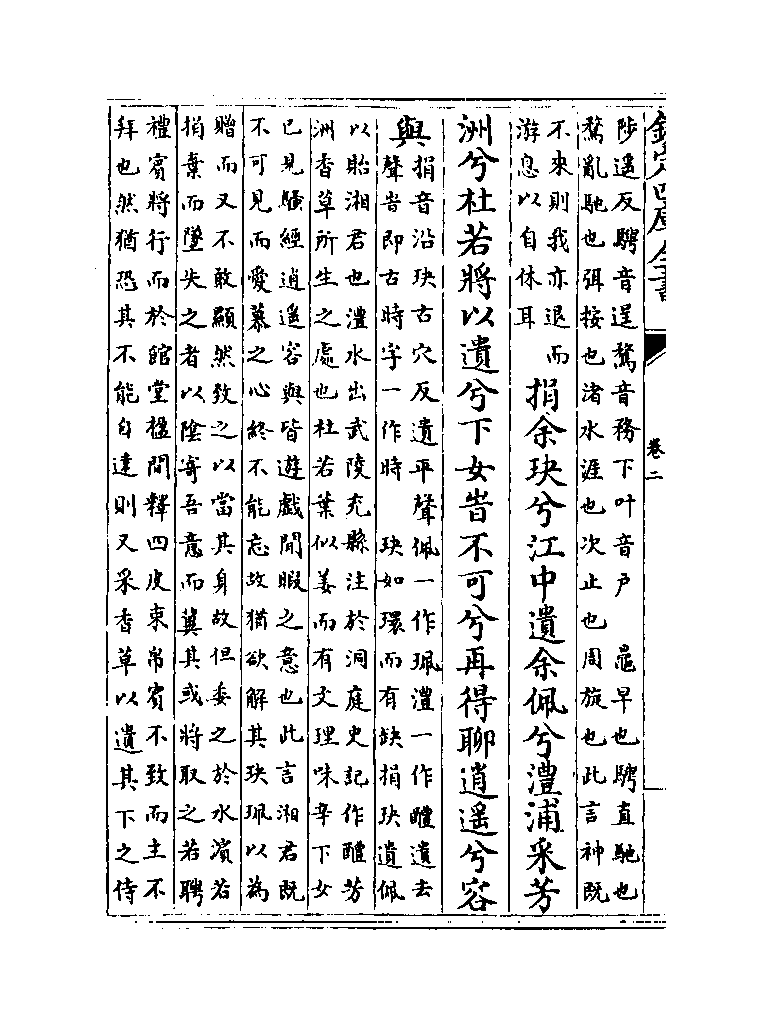 欽定四庫全書
卷二
陟遥反騁音逞騖音務下叶音户　鼂早也騁直馳也
騖亂馳也弭按也渚水涯也次止也周旋也此言神既
不來則我亦退而
游息以自休耳
捐余玦兮江中遺余佩兮澧浦采芳
洲兮杜若將以遺兮下女旹不可兮再得聊逍遥兮容
與
捐音沿玦古穴反遺平聲佩一作珮澧一作醴遺去
聲旹即古時字一作時　玦如環而有缺捐玦遺佩
以貽湘君也澧水出武陵充縣注於洞庭史記作醴芳
洲香草所生之處也杜若葉似姜而有文理味辛下女
已見騷經逍遥容與皆遊戲閒暇之意也此言湘君既
不可見而愛慕之心終不能忘故猶欲解其玦珮以為
贈而又不敢顯然致之以當其身故但委之於水濱若
捐棄而墜失之者以陰寄吾意而冀其或將取之若聘
禮賓將行而於館堂楹間釋四皮束帛賓不致而主不
拜也然猶恐其不能自達則又采香草以遺其下之侍